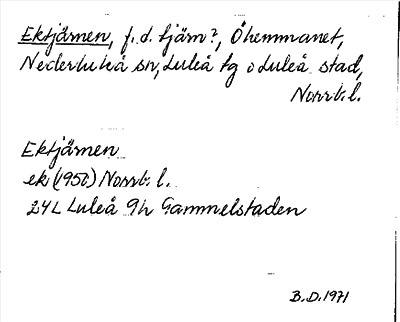 Ektjärnen, f.d. tjärn?, Öhemmanet,
Nederluleå sn, Luleå tg o Luleå stad,
Norrb. l.
Ektjärnen
ek (1950) Norrb. l.
24L Luleå 9h Gammelstaden
B.D. 1971